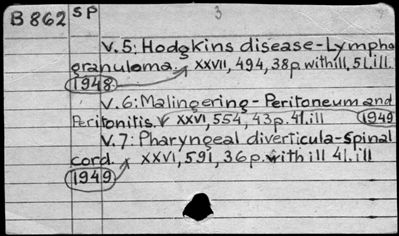 B 862 SP 3
V.5: Hodgkins disease-Lympho
granuloma. XXVII, 494, 38p. with ill. 5 l. ill.
1948
V.6: Malingering - Peritoneum and
Peritonitis. XXVI, 554, 43p. 4l. ill 1949
V.7: Pharyngeal diverticula-Spinal
cord. XXVI, 591, 36p. with ill 4l. ill
1949